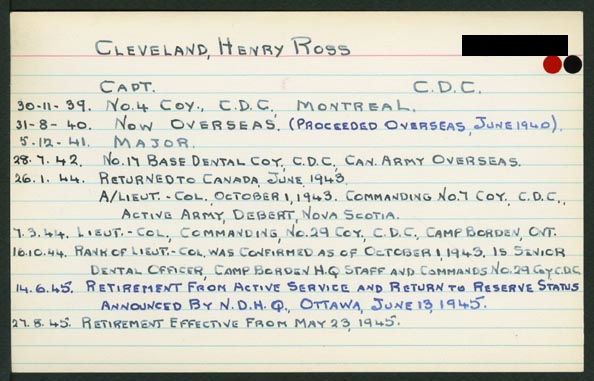 CLEVELAND, HENRY ROSS
CAPT. C.D.C.
30-11-39. NO.4 COY., C.D.C, MONTREAL.
31-8-40. NOW OVERSEAS. (PROCEEDED OVERSEAS, JUNE 1940).
5-12-41. MAJOR.
28.7.42. NO.17 BASE DENTAL COY, C.D.C., CAN. ARMY OVERSEAS.
26.1.44. RETURNED TO CANADA, JUNE, 1943.
A/LIEUT.-COL., OCTOBER 1, 1943. COMMANDING NO.7 COY, C.D.C.,
ACTIVE ARMY, DEBERT, NOVA SCOTIA.
7.3.44. LIEUT.-COL., COMMANDING, NO.29 COY, C.D.C., CAMP BORDEN, ONT.
16.10.44. RANK OF LIEUT.-COL. WAS CONFIRMED AS OF OCTOBER 1, 1943. IS SENIOR
DENTAL OFFICER, CAMP BORDEN H.Q. STAFF AND COMMANDS NO.29 COY C.D.C.
14.6.45. RETIREMENT FROM ACTIVE SERVICE AND RETURN TO RESERVE STATUS
ANNOUNCED BY N.D.H.Q., OTTAWA, JUNE 13, 1945.
27.8.45. RETIREMENT EFFECTIVE FROM MAY 23, 1945.